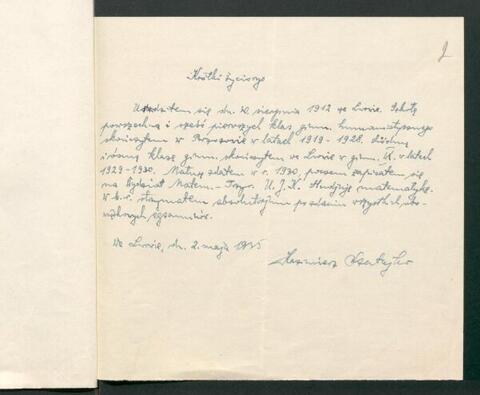 2
Krótki życiorys
Urodziłem się dn. sierpnia 1912 we Lwowie. Szkołę
powszechną i sześć pierwszych klas gimn. humanistycznego
skończyłem w Rzeszowie w latach 1919 - 1928. Siódmą
i ósmą klasę gimn. skończyłem we Lwowie w gimn. w latach
1929 - 1930. Maturę zdałem w r. 1930, poczem zapisałem się
na Wydział Matem. - Przyr. U.J.K. Studjuję matematykę.
W b.r. otrzymałem absolutorjum po zdaniu wszystkich obo-
wiązkowych egzaminów.
We Lwowie, dn. 2. maja 1935
Kazimierz